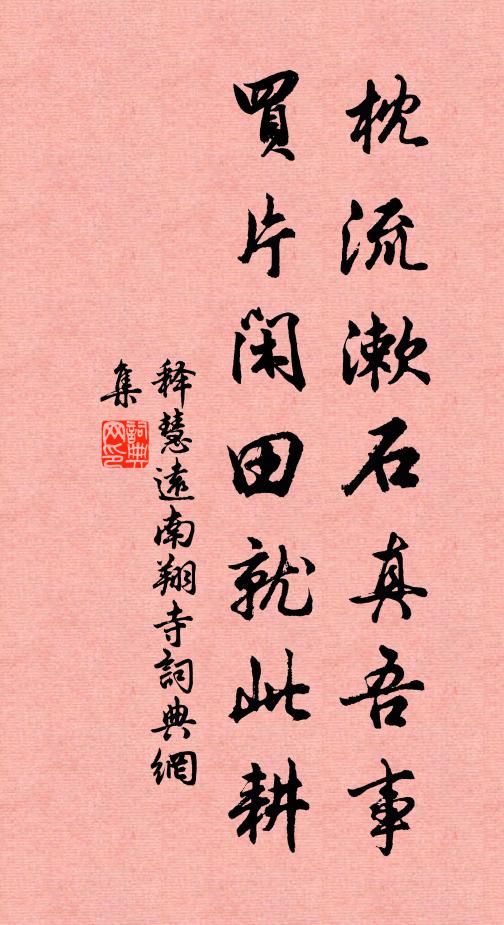 枕流漱石真吾事
買片閑田就此耕
释慧遠南翔寺詞典網
集
詞典
网印